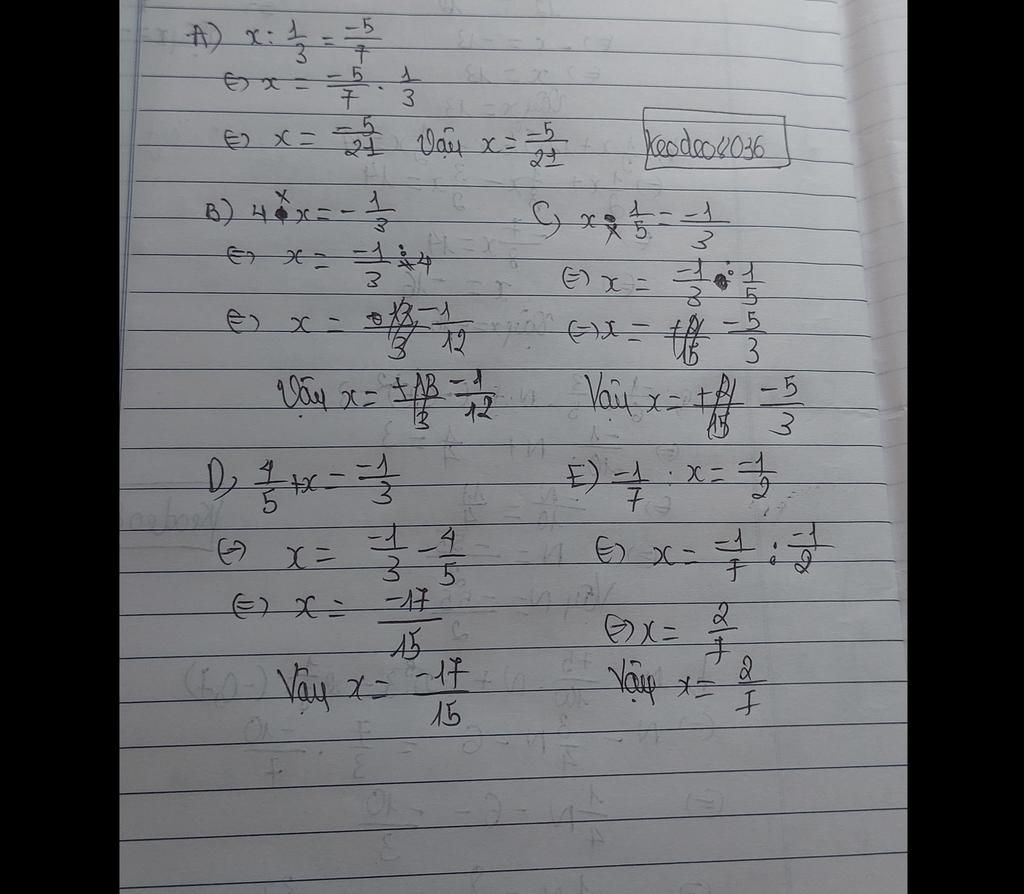 A) x : 1/3 = -5/7
⇔ x = -5/7 . 1/3
⇔ x = -5/21 Vậy x = -5/21
Keodeo2036
B) 4 × x = - 1/3
⇔ x = -1/3 : 4
⇔ x = -1/12
Vậy x = -1/12
C) x × 1/5 = -1/3
⇔ x = -1/3 : 1/5
⇔ x = -5/3
Vậy x = -5/3
D) 4/5 + x = -1/3
⇔ x = -1/3 - 4/5
⇔ x = -17/15
Vậy x = -17/15
E) -1/7 : x = -1/2
⇔ x = -1/7 : -1/2
⇔ x = 2/7
Vậy x = 2/7